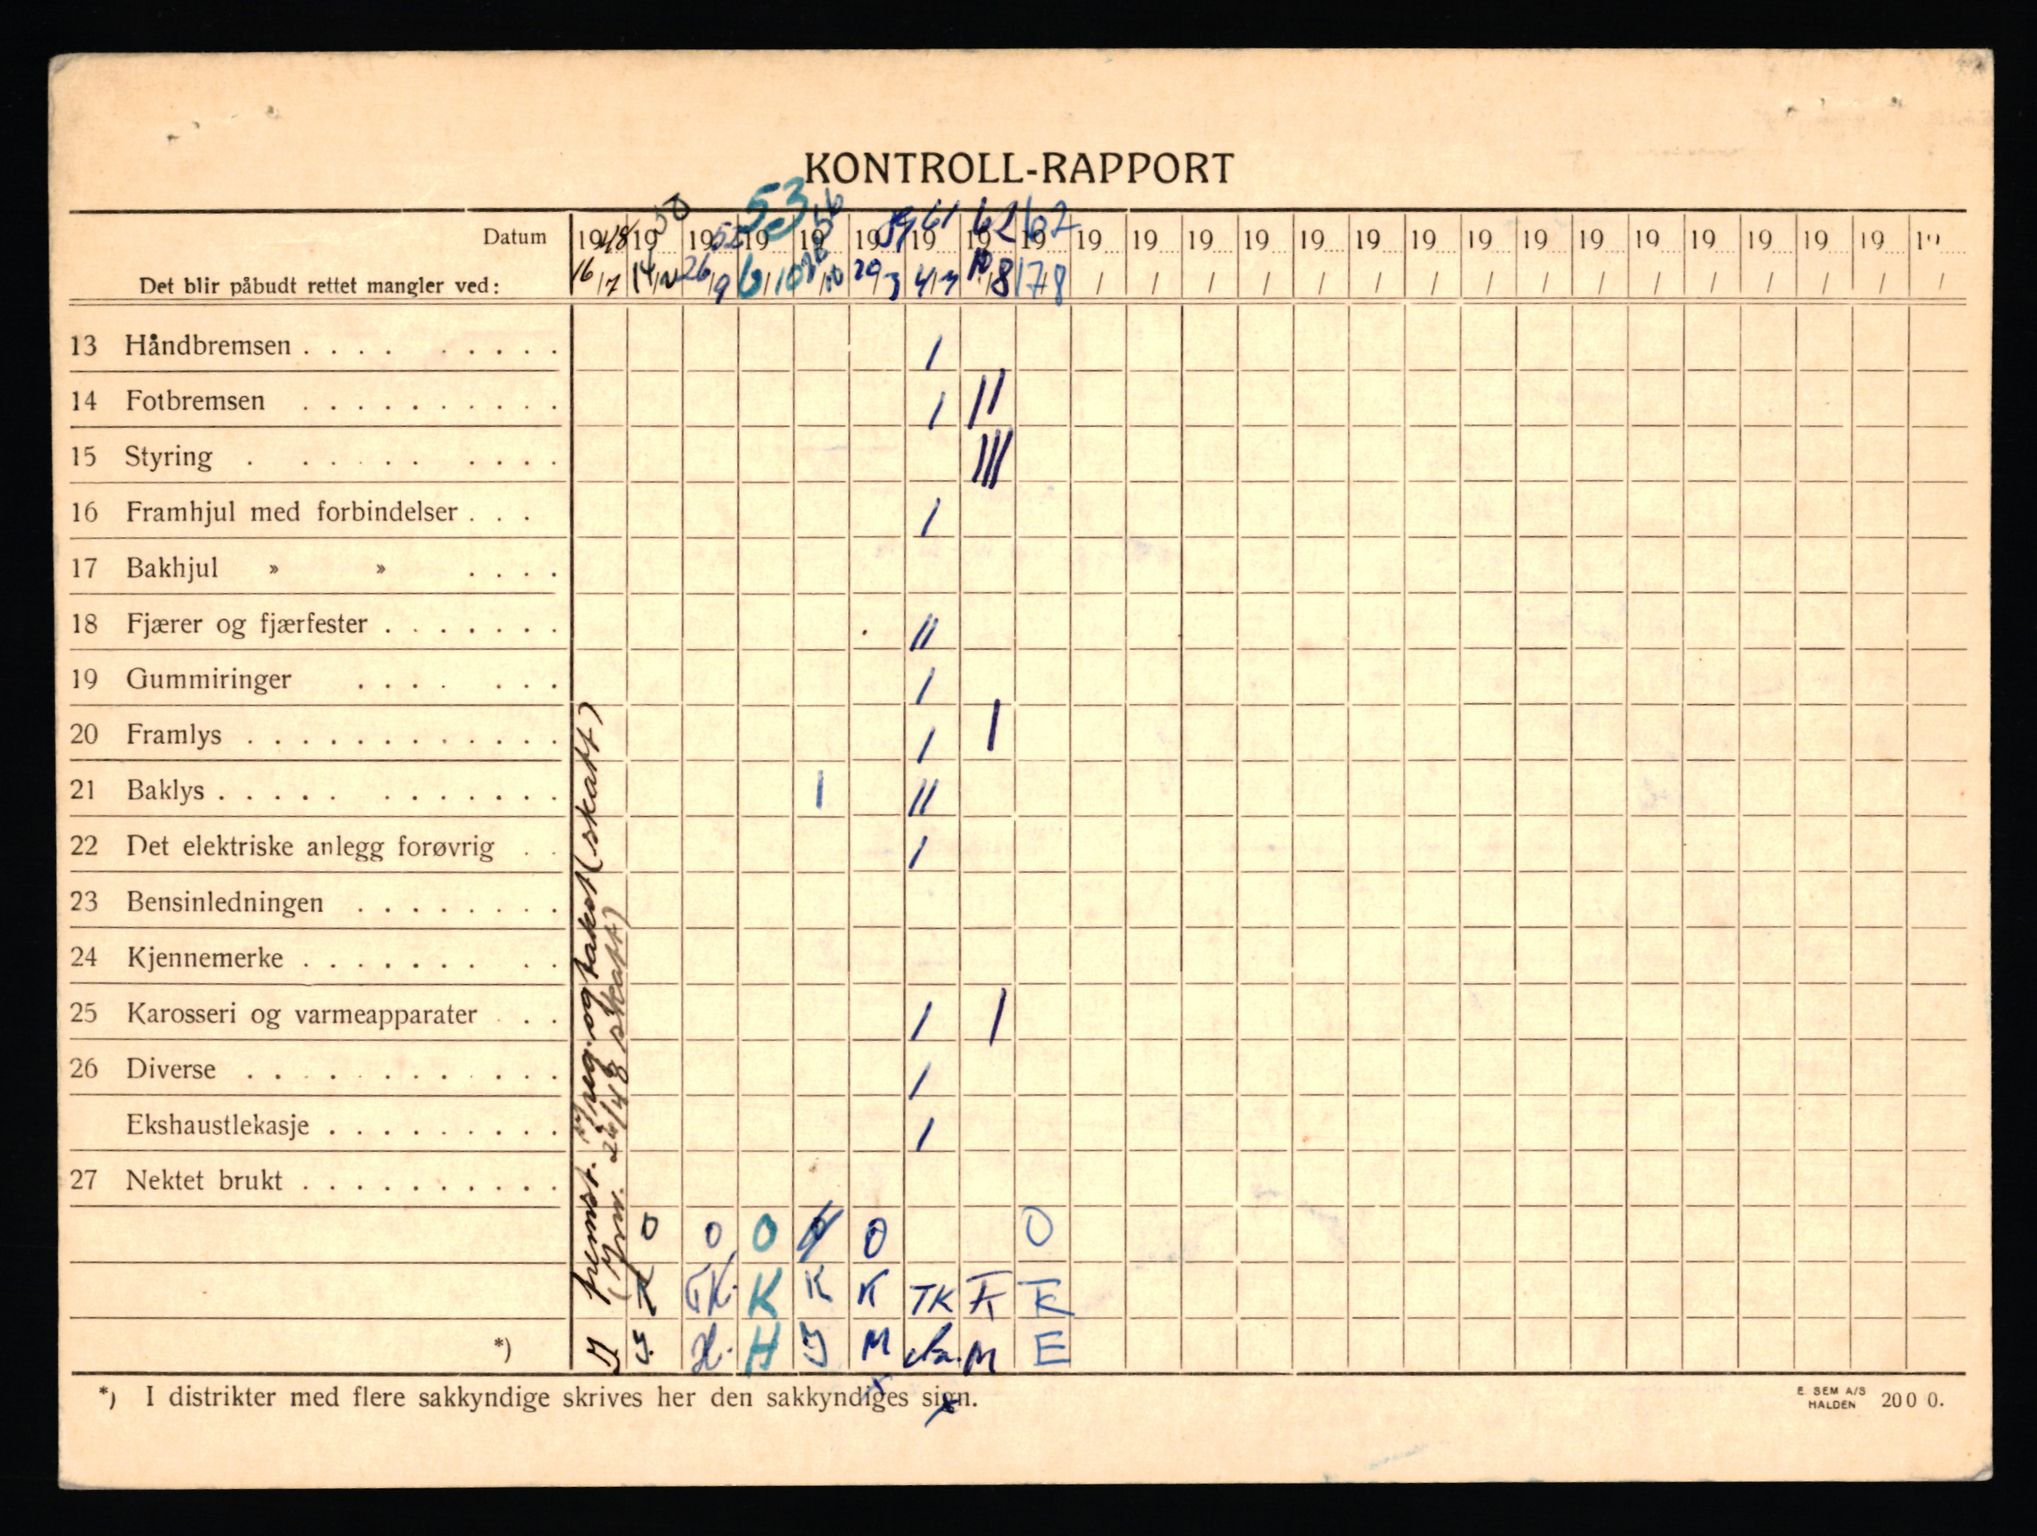 KONTROLL-RAPPORT
Datum 1948 1950 1952 1953 1956 1959 1961 1962 1962 19 19 19 19 19 19 19 19 19 19 19 19 19 19 19 19
Det blir påbudt rettet mangler ved: 16/7 14/2 26/9 6/10 /10 20/3 4/7 10/8 17/8 / / / / / / / / / / / / / / / /
13 Håndbremsen . . . . . . . . . I
14 Fotbremsen . . . . . . . . . . I II
15 Styring . . . . . . . . . . III
16 Framhjul med forbindelser . . . I
17 Bakhjul » » . . . .
18 Fjærer og fjærfester . . . . . . . II
19 Gummiringer . . . . . . . I
20 Framlys . . . . . . . . . . . . I I
21 Baklys . . . . . . . . . . . . I II
22 Det elektriske anlegg forøvrig . . I
23 Bensinledningen . . . . . . . .
24 Kjennemerke . . . . . . . . .
25 Karosseri og varmeapparater . . . I I
26 Diverse . . . . . . . . . . . I
Ekshaustlekasje . . . . . . . . . I
27 Nektet brukt . . . . . . . . . .
fremst. reg. og takst (skatt)
26/48 skatt)
O O O O O O
K TK. K K K TK TK TK
*) J J. H. H J M M E
*) I distrikter med flere sakkyndige skrives her den sakkyndiges sign.
x x
E. SEM A/S
HALDEN 2000.